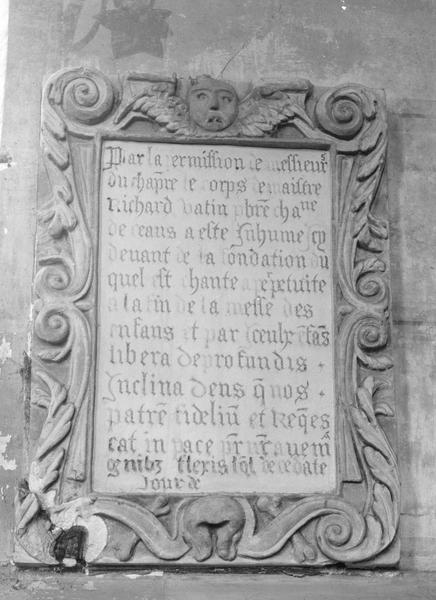 Par la permission de messieurs
du chapre le corps de maistre
Richard vatin pbre chane
de ceans a este Inhume icy
deuant de la fondation du
quel est chante a perpetuite
a la fin de la messe des
enfans et par iceulx enfãs
libera de profundis .
Inclina Deus q̃ nos .
patrẽ fideliũ et Reqes
cat in pace pr̃ nr̃ auem
flexis
Jour de